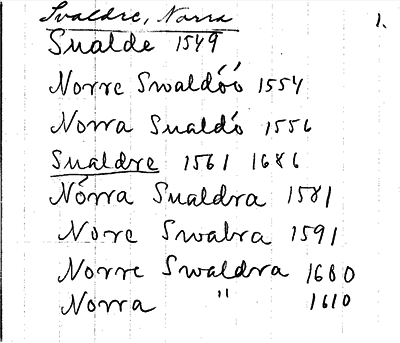 Svaldre, Norra 1.
Sualde 1549
Norre Swaldóó 1554
Norra Sualdó 1556
Sualdre 1561 1686
Nórra Sualdra 1581
Nore Swabra 1591
Norre Swaldra 1600
Norra " 1610